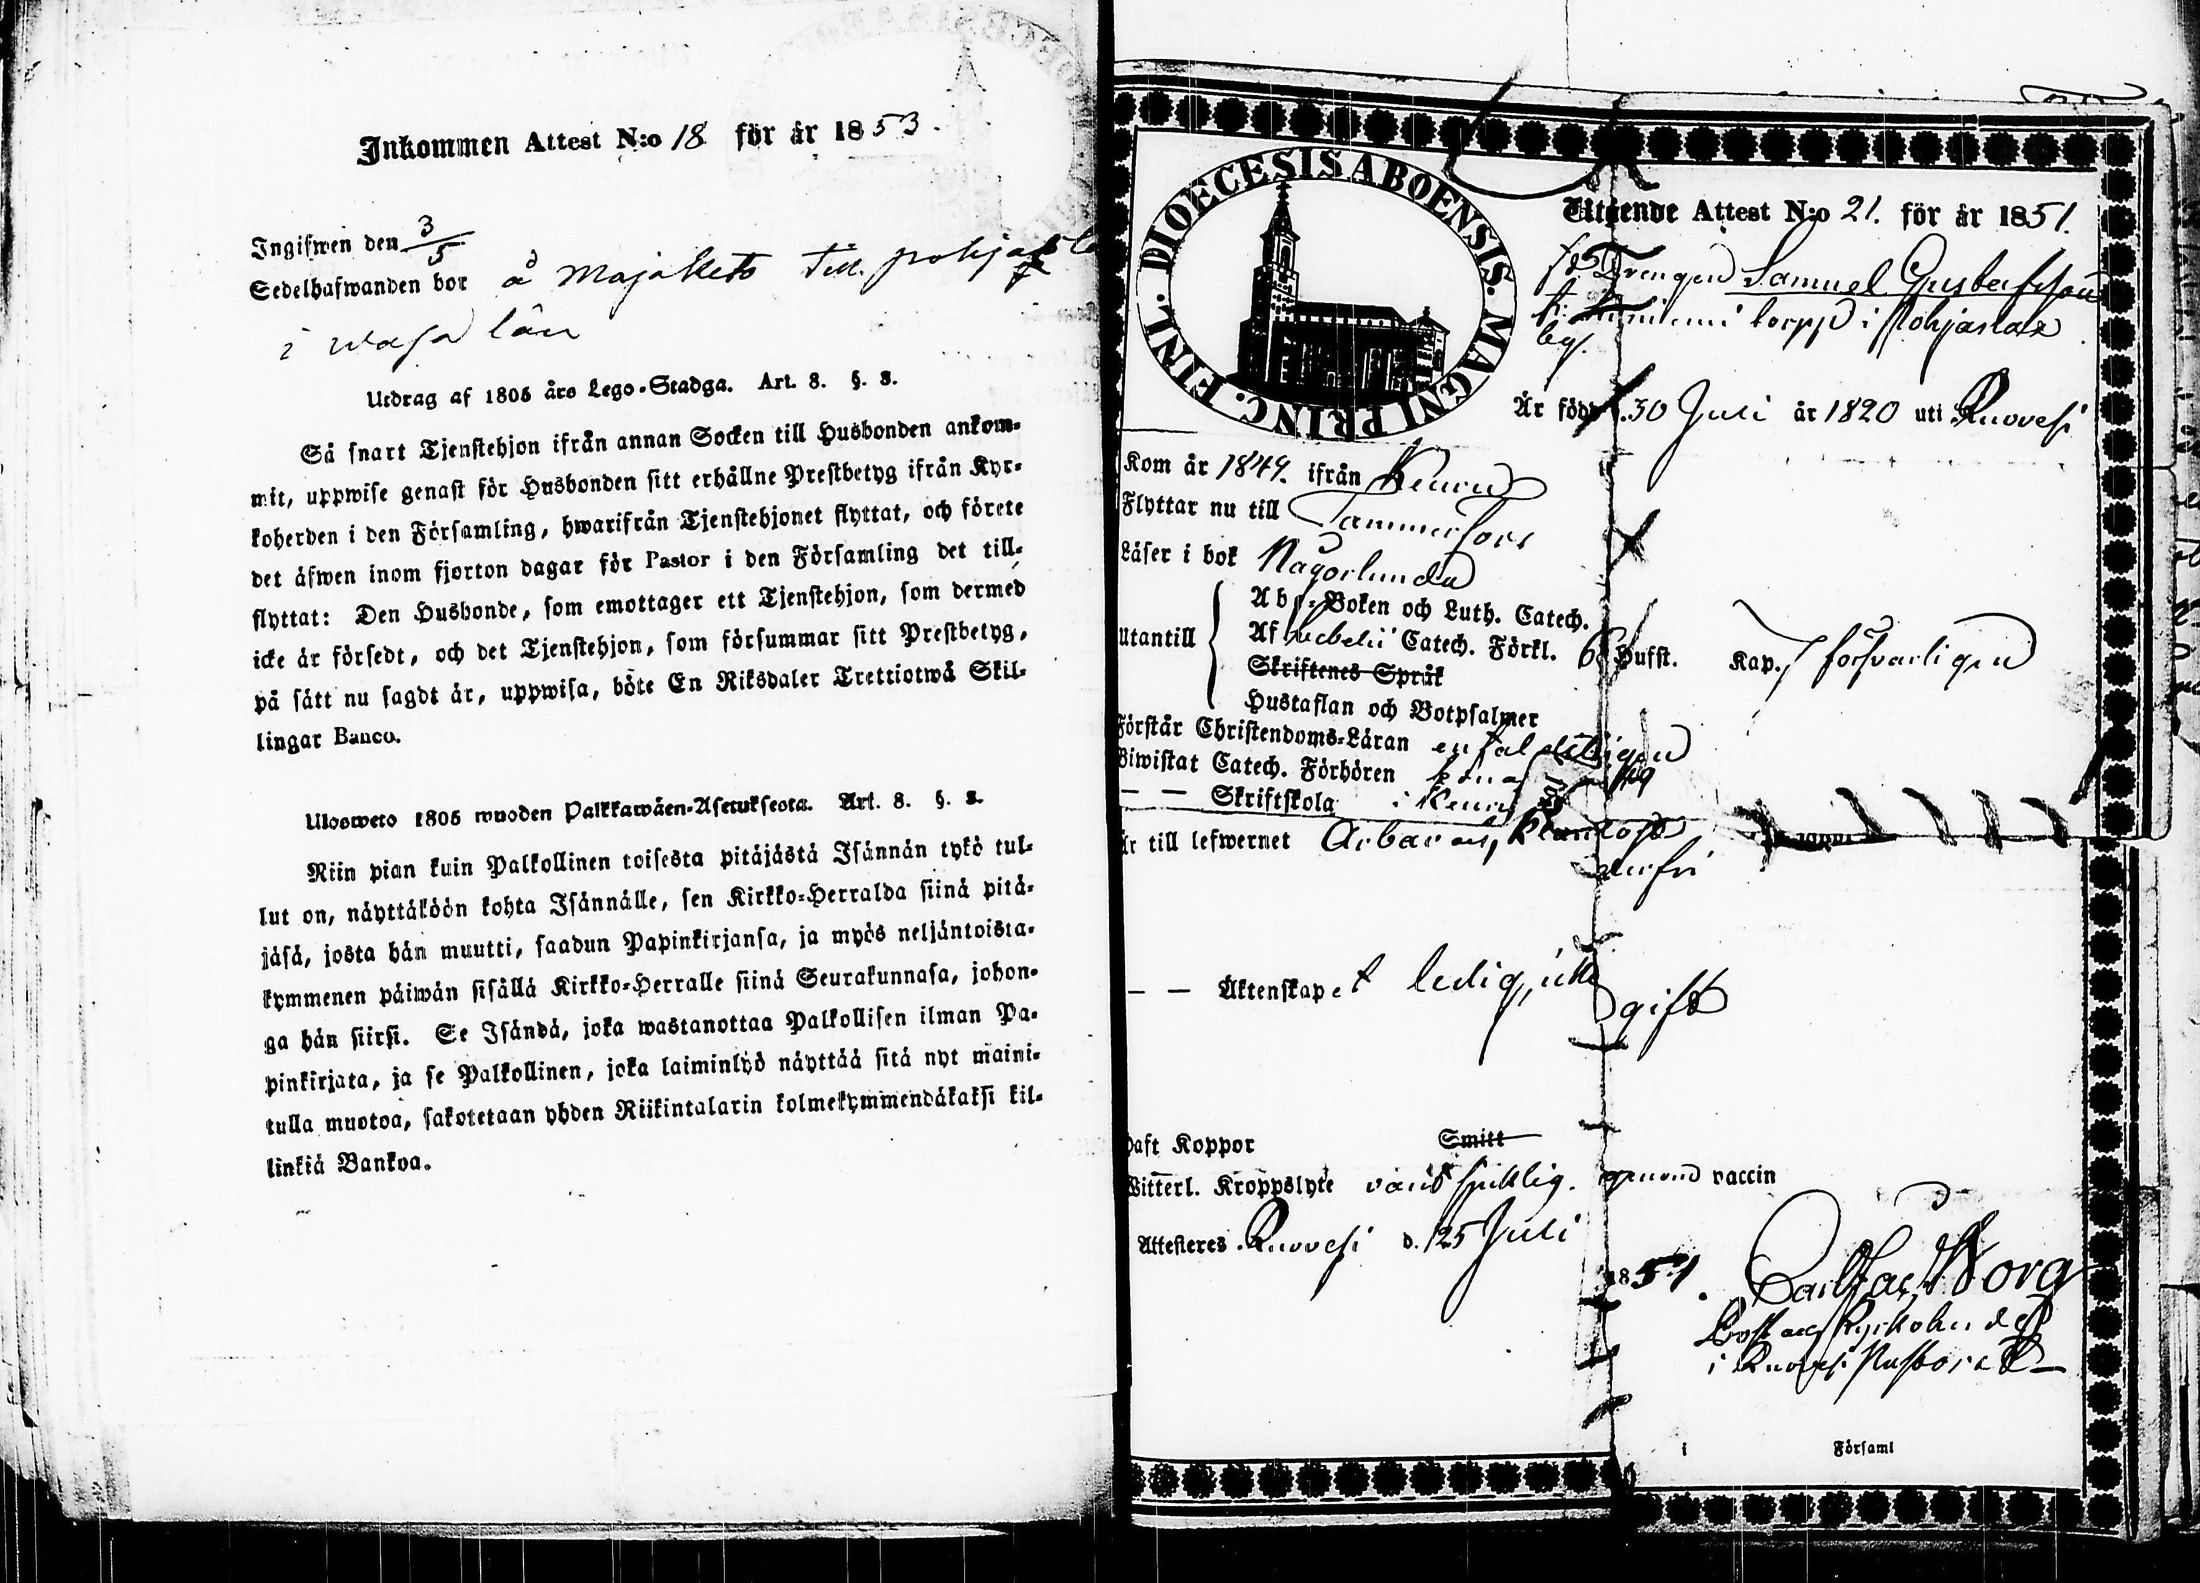 Inkommen Attest N:o 18 för år 1853.
Ingifwen den 3/5
Sedelhafwanden bor å majakets till
i wasa län
Utdrag af 1805 års Lego-Stadga. Art. 8. §. 3.
Så snart Tjenstehjon ifrån annan Socken till Husbonden ankom-
mit, uppwise genast för Husbonden sitt erhållne Prestbetyg ifrån Kyr-
koherden i den Församling, hwarifrån Tjenstehjonet flyttat, och förete
det äfwen inom fjorton dagar för Pastor i den Församling det till-
flyttat: Den Husbonde, som emottager ett Tjenstehjon, som dermed
icke är försedt, och det Tjenstehjon, som försummar sitt Prestbetyg,
på sätt nu sagdt är, uppwisa, böte En Riksdaler Trettiotwå Skil-
lingar Banco.
Uloswetto 1805 wuoden Palkkawäen-Asetuksesta. Art. 8. §. 3.
Niin pian kuin Palkollinen toisesta pitäjästä Isännän tykö tul-
lut on, näyttäköön kohta Isännälle, sen Kirkko-Herralda siinä pitä-
jäsä, josta hän muutti, saadun Papinkirjansa, ja myös neljäntoista-
kymmenen päiwän sisällä Kirkko-Herralle siinä Seurakunnasa, johon-
ga hän siirsi. Se Isändä, joka wastanottaa Palkollisen ilman Pa-
pinkirjata, ja se Palkollinen, joka laiminlyö näyttää sitä nyt maini-
tulla muotoa, sakotetaan yhden Riikintalarin kolmekymmendäkaksi kil-
linkiä Bankoa.
DIOECESIS ABOENSIS. MAGNI PRINC. FINL.
Utgående Attest N:o 21. för år 1851.
för Drengen Samuel Gustafsson
torpp i Pohjaslax
by.
Är född d. 30 Juli år 1820 uti Ruovesi
Kom år 1849. ifrån Keuru
Flyttar nu till Tammerfors
Läser i bok Någorlunda
utantill
Abc-Boken och Luth. Catech.
Af Svebelii Catech. Förkl. 6 Hufst. Kap. försvarligen
Skriftenes Språk
Hustaflan och Botpsalmer
Förstår Christendoms-Läran enfaldeligen
Biwistat Catech. Förhören
— — Skriftskola i Keuru
Är till lefwernet ärbar och
— — Äktenskapet ledig, icke
gift
Haft Koppor Smitt
Witterl. Kroppslyte genom vaccin
Attesteres Ruovesi d. 25 Juli
1851.
Prost och Kyrkoherde
i Ruovesi Pastorat
i Församl